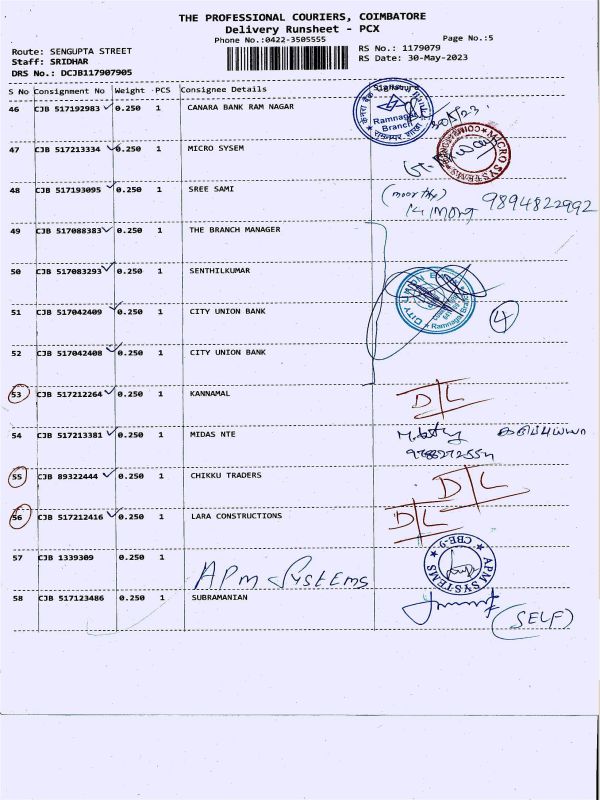 THE PROFESSIONAL COURIERS, COIMBATORE
Delivery Runsheet - PCX
Phone No.:0422-3505555
Page No.:5
Route: SENGUPTA STREET
RS No.: 1179079
Staff: SRIDHAR
RS Date: 30-May-2023
DRS No.: DCJB117907905
S No Consignment No Weight PCS Consignee Details Signature
46 CJB 517192983 0.250 1 CANARA BANK RAM NAGAR
Ramnagar
Branch
47 CJB 517213334 0.250 1 MICRO SYSEM
MICRO SYSTEMS
48 CJB 517193095 0.250 1 SREE SAMI
(moorthy) 9894822992
49 CJB 517088383 0.250 1 THE BRANCH MANAGER
50 CJB 517083293 0.250 1 SENTHILKUMAR
CITY UNION BANK
Ramnagar Branch
51 CJB 517042409 0.250 1 CITY UNION BANK
4
52 CJB 517042408 0.250 1 CITY UNION BANK
53 CJB 517212264 0.250 1 KANNAMAL
D/L
54 CJB 517213381 0.250 1 MIDAS NTE
55 CJB 89322444 0.250 1 CHIKKU TRADERS
D/L
56 CJB 517212416 0.250 1 LARA CONSTRUCTIONS
D/L
57 CJB 1339309 0.250 1 APM SYSTEMS
APM SYSTEMS CBE-9
58 CJB 517123486 0.250 1 SUBRAMANIAN
(SELF)